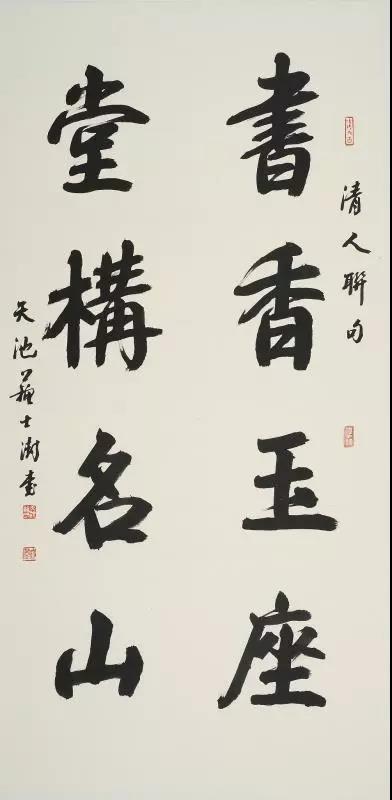 清人聯句
書香玉座
堂構名山
天池蘇士澍書